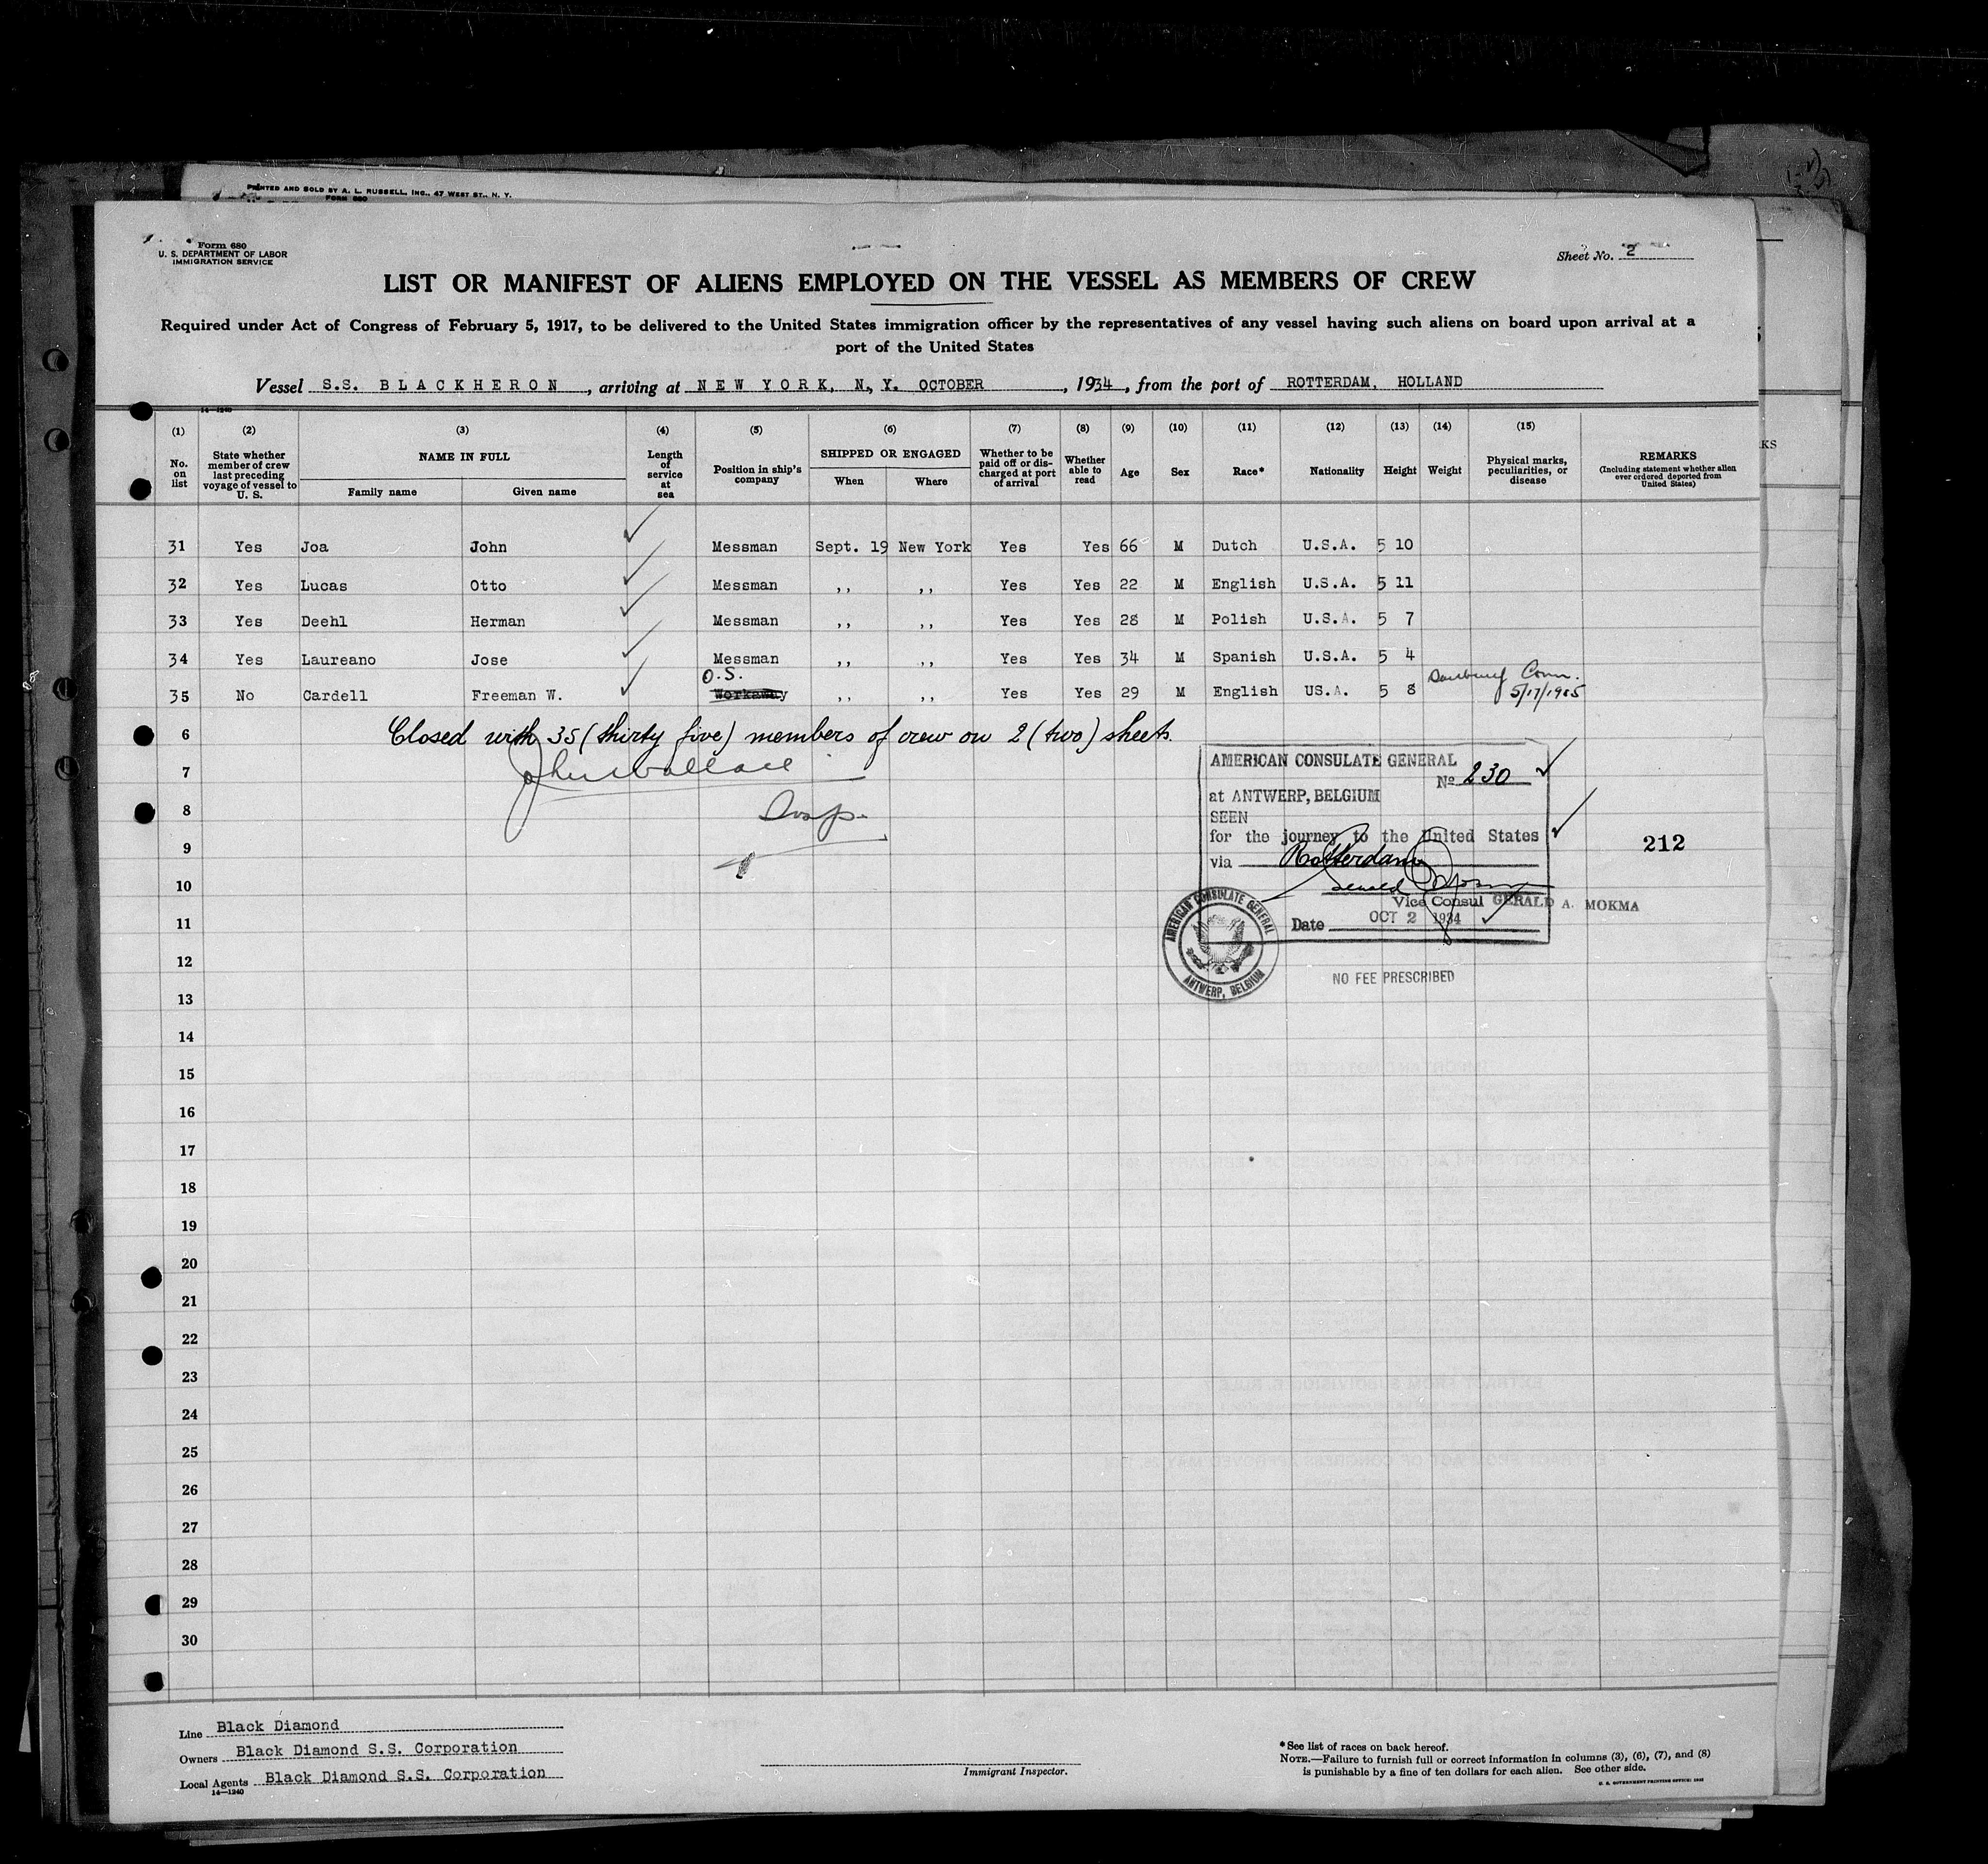 PRINTED AND SOLD BY A. L. RUSSELL, INC., 47 WEST ST., N. Y.
FORM 680
Form 680
U. S. DEPARTMENT OF LABOR
IMMIGRATION SERVICE
Sheet No. 2
LIST OR MANIFEST OF ALIENS EMPLOYED ON THE VESSEL AS MEMBERS OF CREW
Required under Act of Congress of February 5, 1917, to be delivered to the United States immigration officer by the representatives of any vessel having such aliens on board upon arrival at a
port of the United States
Vessel S.S. BLACKHERON, arriving at NEW YORK, N., Y. OCTOBER, 1934, from the port of ROTTERDAM, HOLLAND
14—1240
(1) No. on list
(2) State whether member of crew last preceding voyage of vessel to U. S.
(3) NAME IN FULL
Family name
Given name
(4) Length of service at sea
(5) Position in ship's company
(6) SHIPPED OR ENGAGED
When
Where
(7) Whether to be paid off or discharged at port of arrival
(8) Whether able to read
(9) Age
(10) Sex
(11) Race*
(12) Nationality
(13) Height
(14) Weight
(15) Physical marks, peculiarities, or disease
REMARKS
(Including statement whether alien ever ordered deported from United States)
KS
31 Yes Joa John Messman Sept. 19 New York Yes Yes 66 M Dutch U.S.A. 5 10
32 Yes Lucas Otto Messman ,, ,, Yes Yes 22 M English U.S.A. 5 11
33 Yes Deehl Herman Messman ,, ,, Yes Yes 28 M Polish U.S.A. 5 7
34 Yes Laureano Jose Messman ,, ,, Yes Yes 34 M Spanish U.S.A. 5 4
O.S.
35 No Cardell Freeman W. Workaway ,, ,, Yes Yes 29 M English US.A. 5 8 Danbury Conn.
5/17/1905
6 Closed with 35 (thirty five) members of crew on 2 (two) sheets.
7 John Wallace
8
9
10
11
12
13
14
15
16
17
18
19
20
21
22
23
24
25
26
27
28
29
30
AMERICAN CONSULATE GENERAL
No 230
at ANTWERP, BELGIUM
SEEN
for the journey to the United States
via Rotterdam
Vice Consul GERALD A. MOKMA
Date OCT 2 1934
212
AMERICAN CONSULATE GENERAL
ANTWERP, BELGIUM
NO FEE PRESCRIBED
Line Black Diamond
Owners Black Diamond S.S. Corporation
Local Agents Black Diamond S.S. Corporation
14—1240
Immigrant Inspector.
*See list of races on back hereof.
NOTE.—Failure to furnish full or correct information in columns (3), (6), (7), and (8)
is punishable by a fine of ten dollars for each alien. See other side.